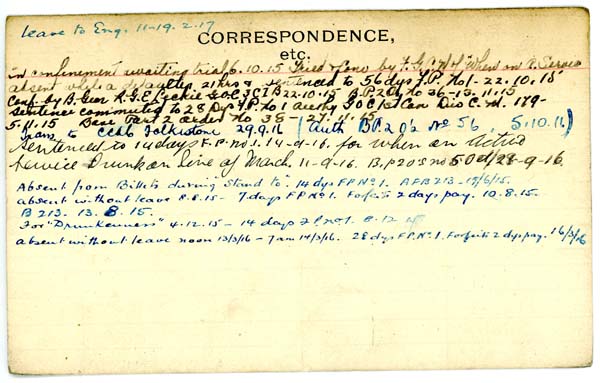 Leave to Eng. 11-19.2.17
CORRESPONDENCE,
etc.
in confinement awaiting trial 6.10.15 Tried & conv by F.G.C.M. "When on A. Service
absent while a defaulter 21 hrs & sentenced to 56 dys F.P. No 1 - 22.10.15
Conf. by B. Gen R.G.E. Leckie G.O.C. 3 C I B 22.10.15 B.P. 2 Ord No 36-13.11.15
Sentence commuted to 28 Dys F.P. No 1 Auth G O C 1st Can Div C.M. 179-
5.11.15 Base Part 2 order No 38 - 27.11.15
Trans to Folkestone 29.9.16 (Auth B.P.2 O's No 56, 5.10.16)
Sentenced to 14 days F.P. no 1. 14-9-16. for when on Active
Service Drunk on line of March 11-9-16. B.P 2 O's no 50 d/28-9-16
Absent from Billets during "Stand to". 14 dys F.P. No 1. AFB 213 - /6/15.
absent without leave 8.8.15 - 7 days F.P. No 1. Forfeits 2 days pay. 10.8.15.
B 213. 13.8.15.
For "Drunkenness" 4.12.15 - 14 days F.P. No 1. 8.12.15
absent without leave noon 13/3/16 - 7 am 14/3/16. 28 dys F.P. No 1. Forfeits 2 dys pay. 16/3/16